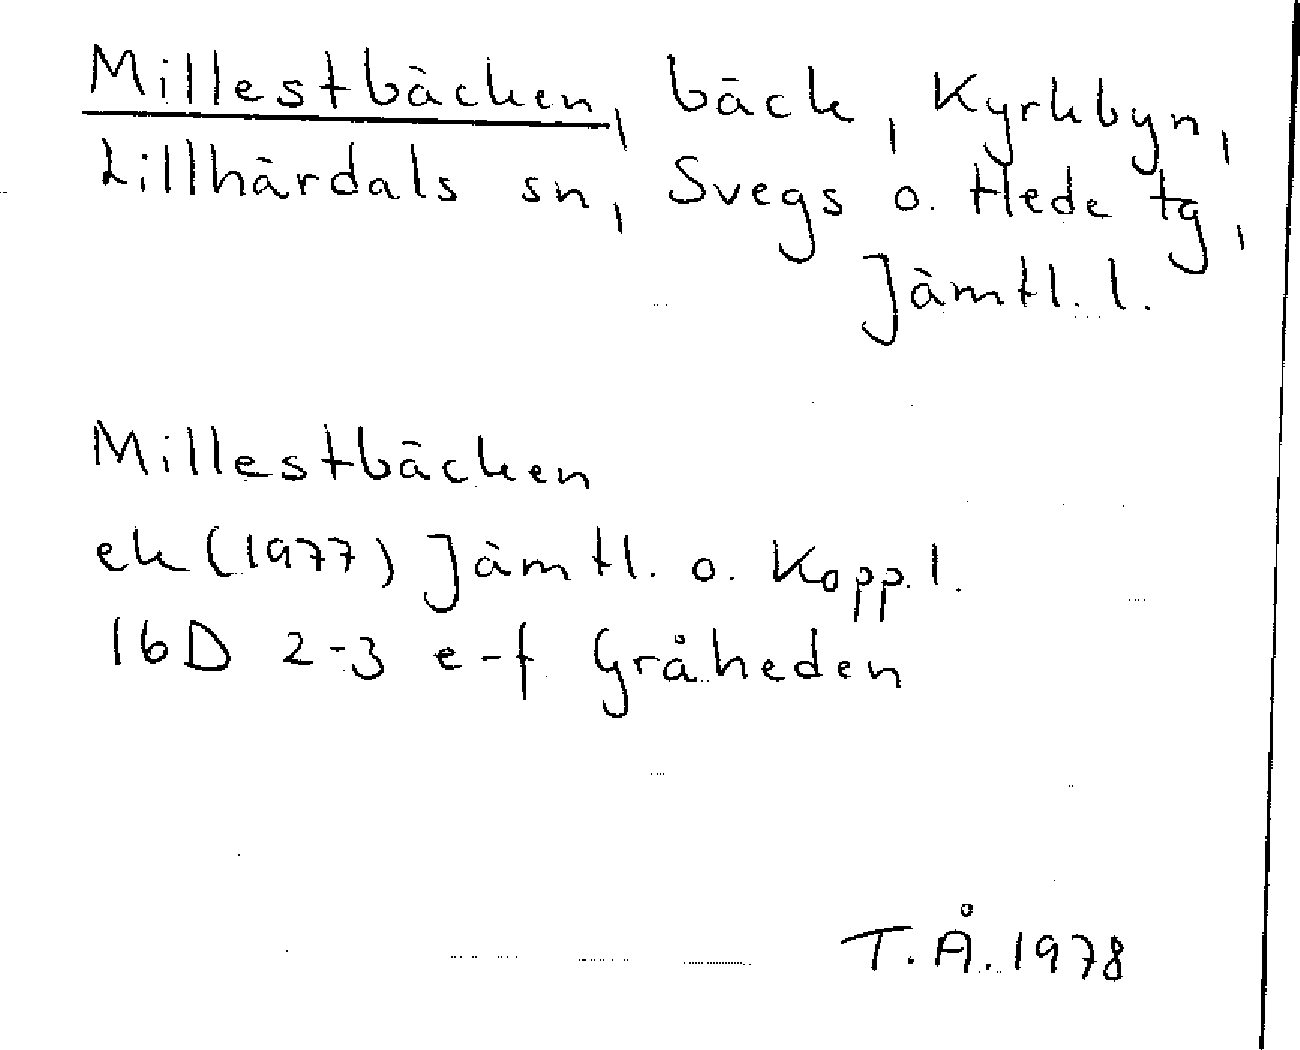 Millestbäcken, bäck, Kyrkbyn,
Lillhärdals sn, Svegs o. Hede tg,
Jämtl. l.
Millestbäcken
ek (1977) Jämtl. o. Kopp. l.
16D 2-3 e-f Gråheden
T.Å. 1978